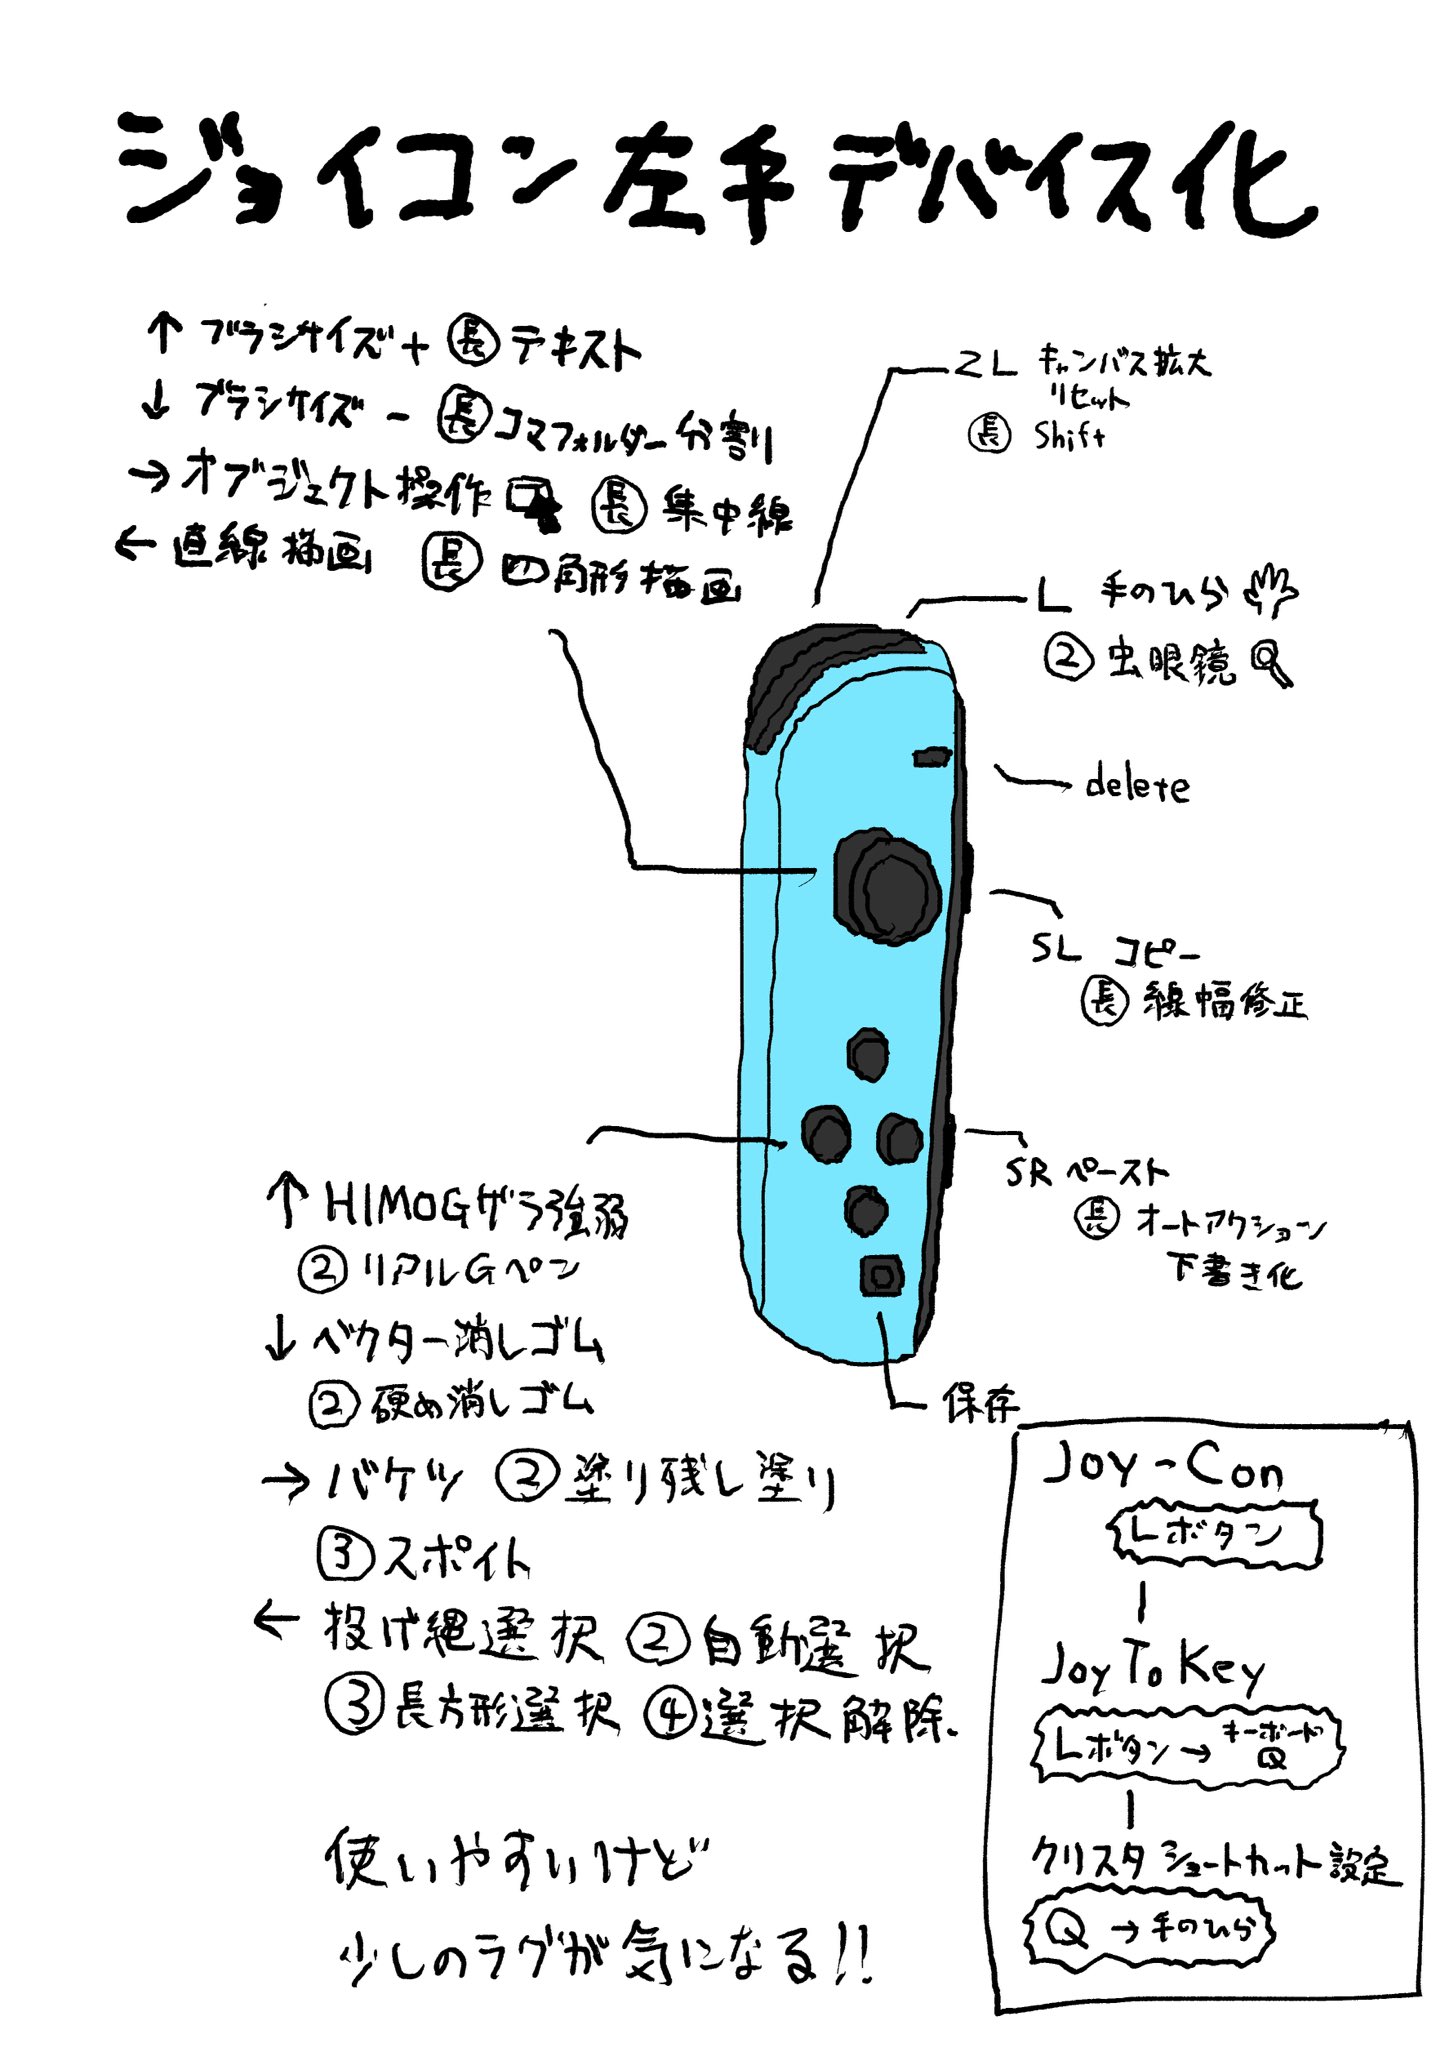 ジョイコン左手デバイス化
↑ ブラシサイズ+ 長 テキスト
↓ ブラシサイズー 長 コマフォルダー分割
→ オブジェクト操作 長 集中線
← 直線描画 長 四角形描画
ZL キャンバス拡大
リセット
長 Shift
L 手のひら
② 虫眼鏡
delete
SL コピー
長 線幅修正
SR ペースト
長 オートアクション
下書き化
↑ HIMOGザラ強弱
② リアルGペン
↓ ベクター消しゴム
② 硬め消しゴム
→ バケツ ② 塗り残し塗り
③ スポイト
← 投げ縄選択 ② 自動選択
③ 長方形選択 ④ 選択解除.
保存
Joy-Con
Lボタン
JoyToKey
Lボタン→キーボードQ
クリスタ ショートカット設定
Q→手のひら
使いやすいけど
少しのラグが気になる!!